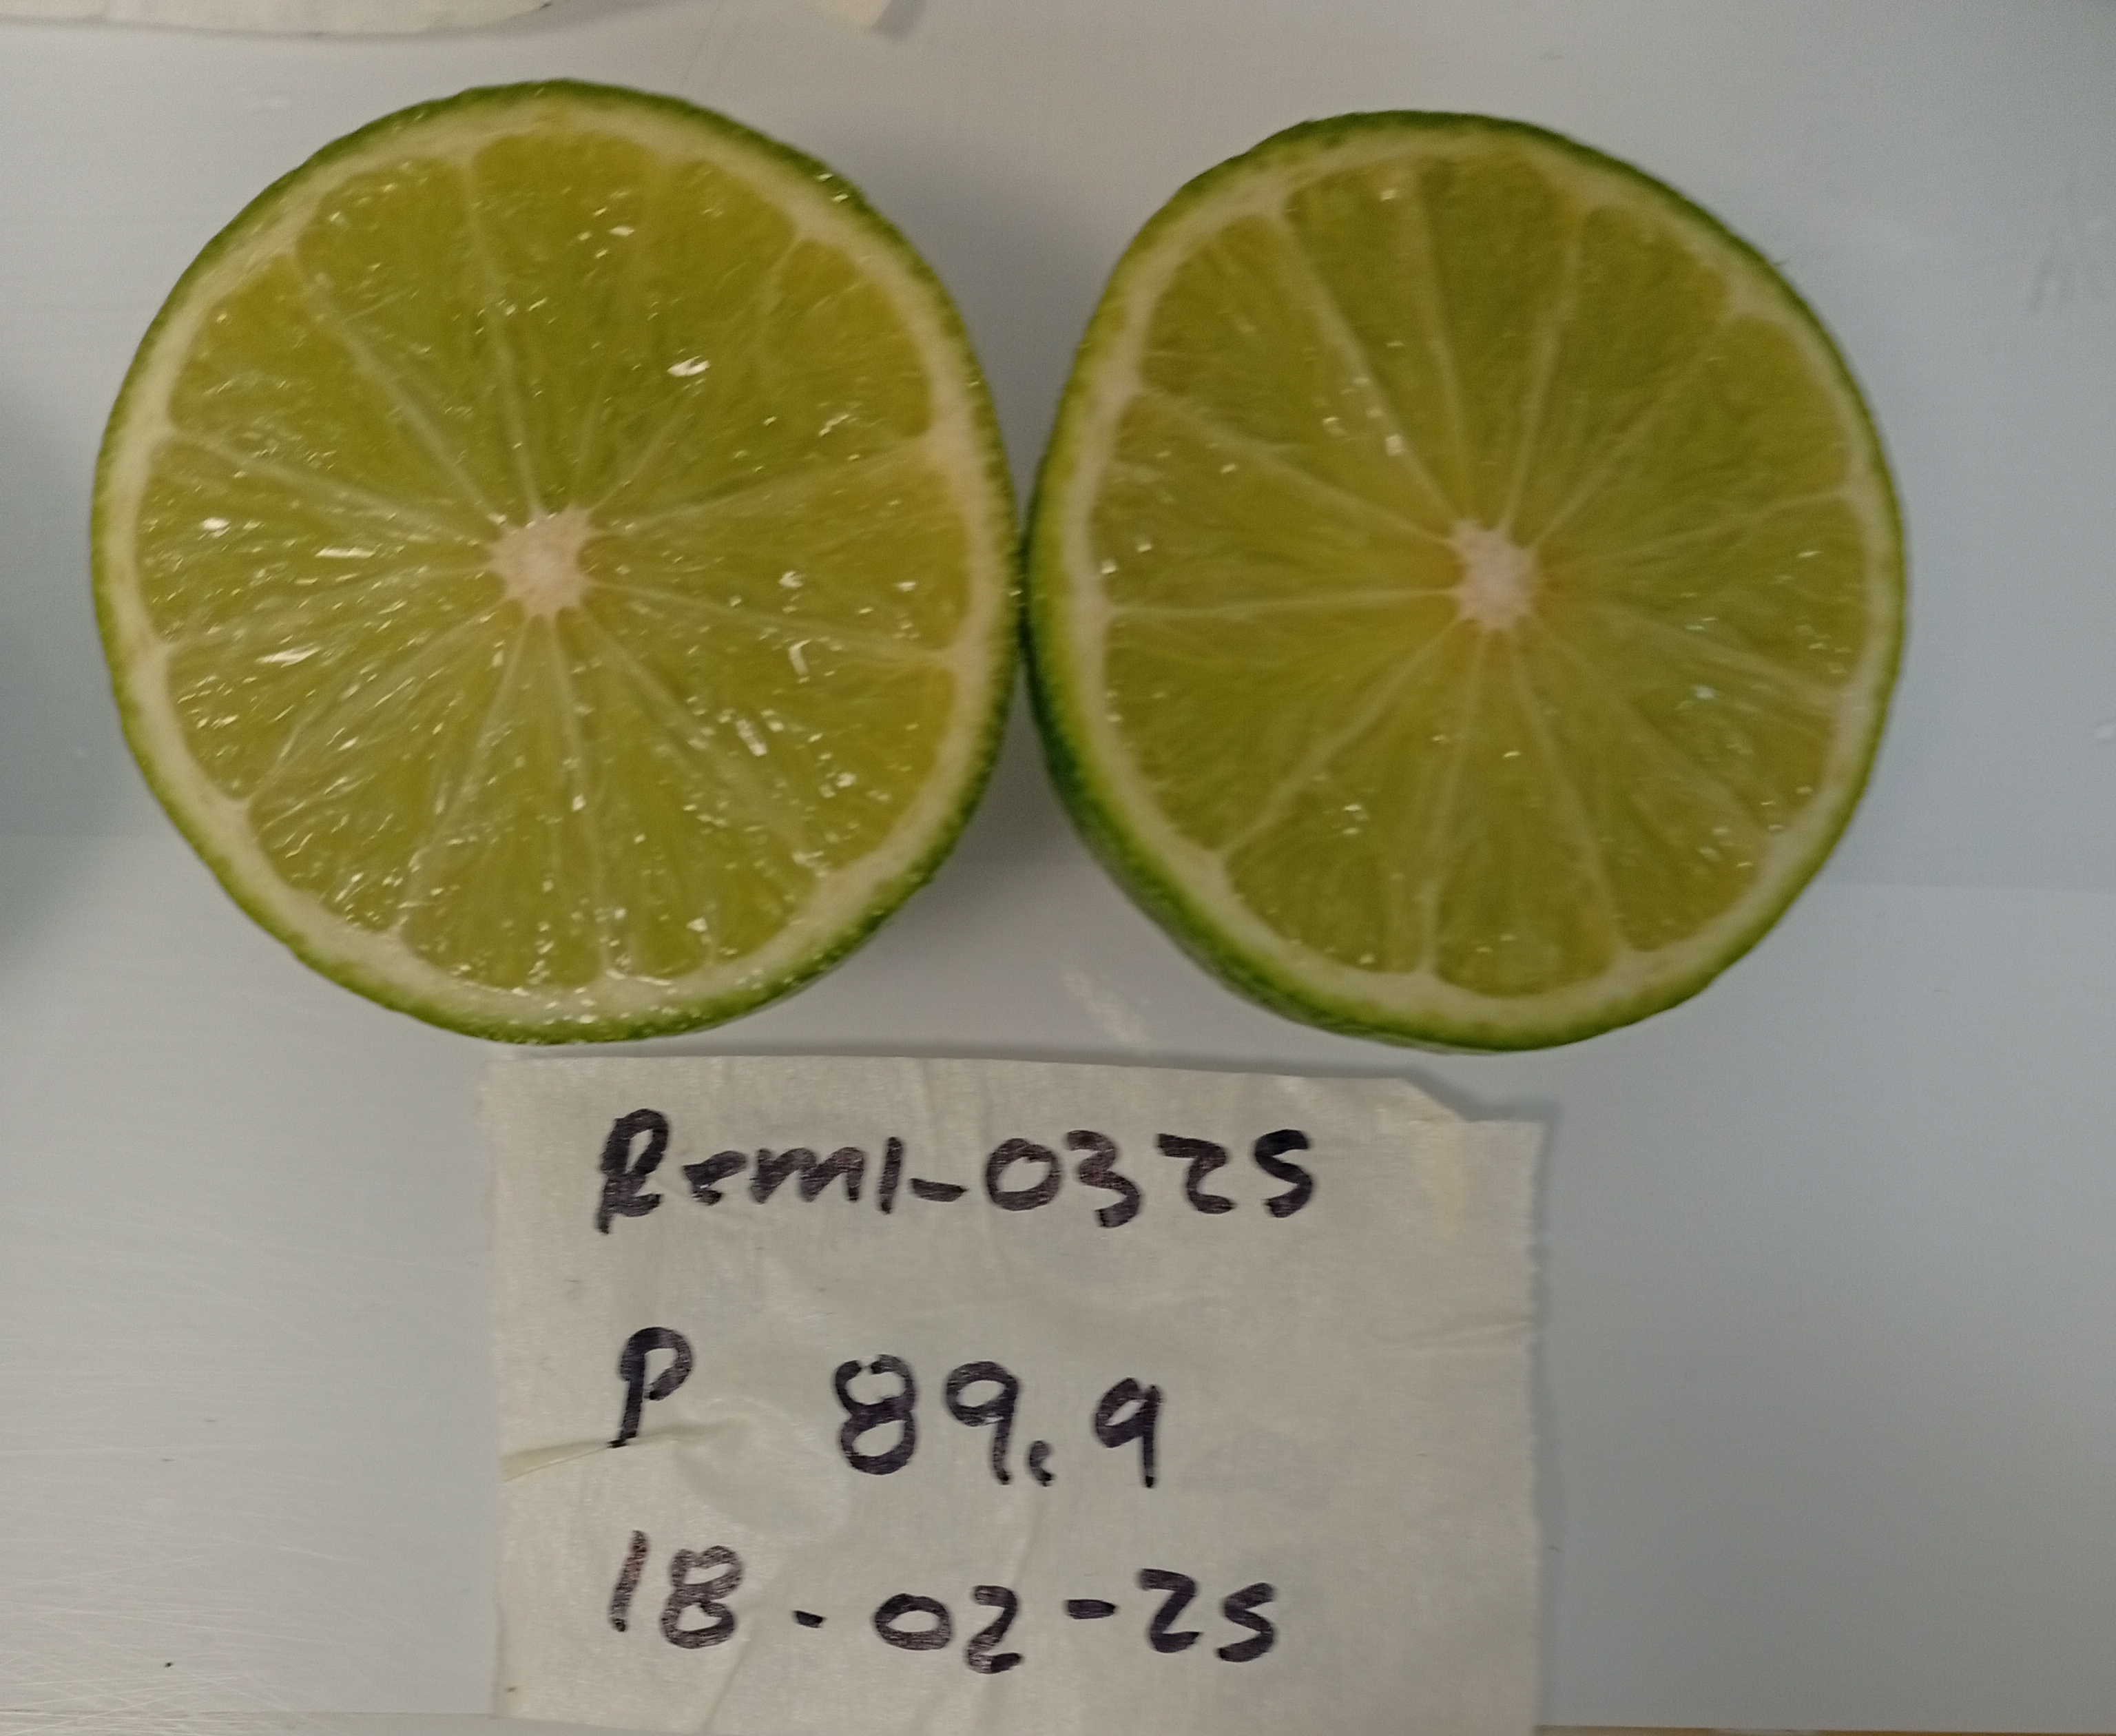 Reml-0325
P 89.9
18-02-25